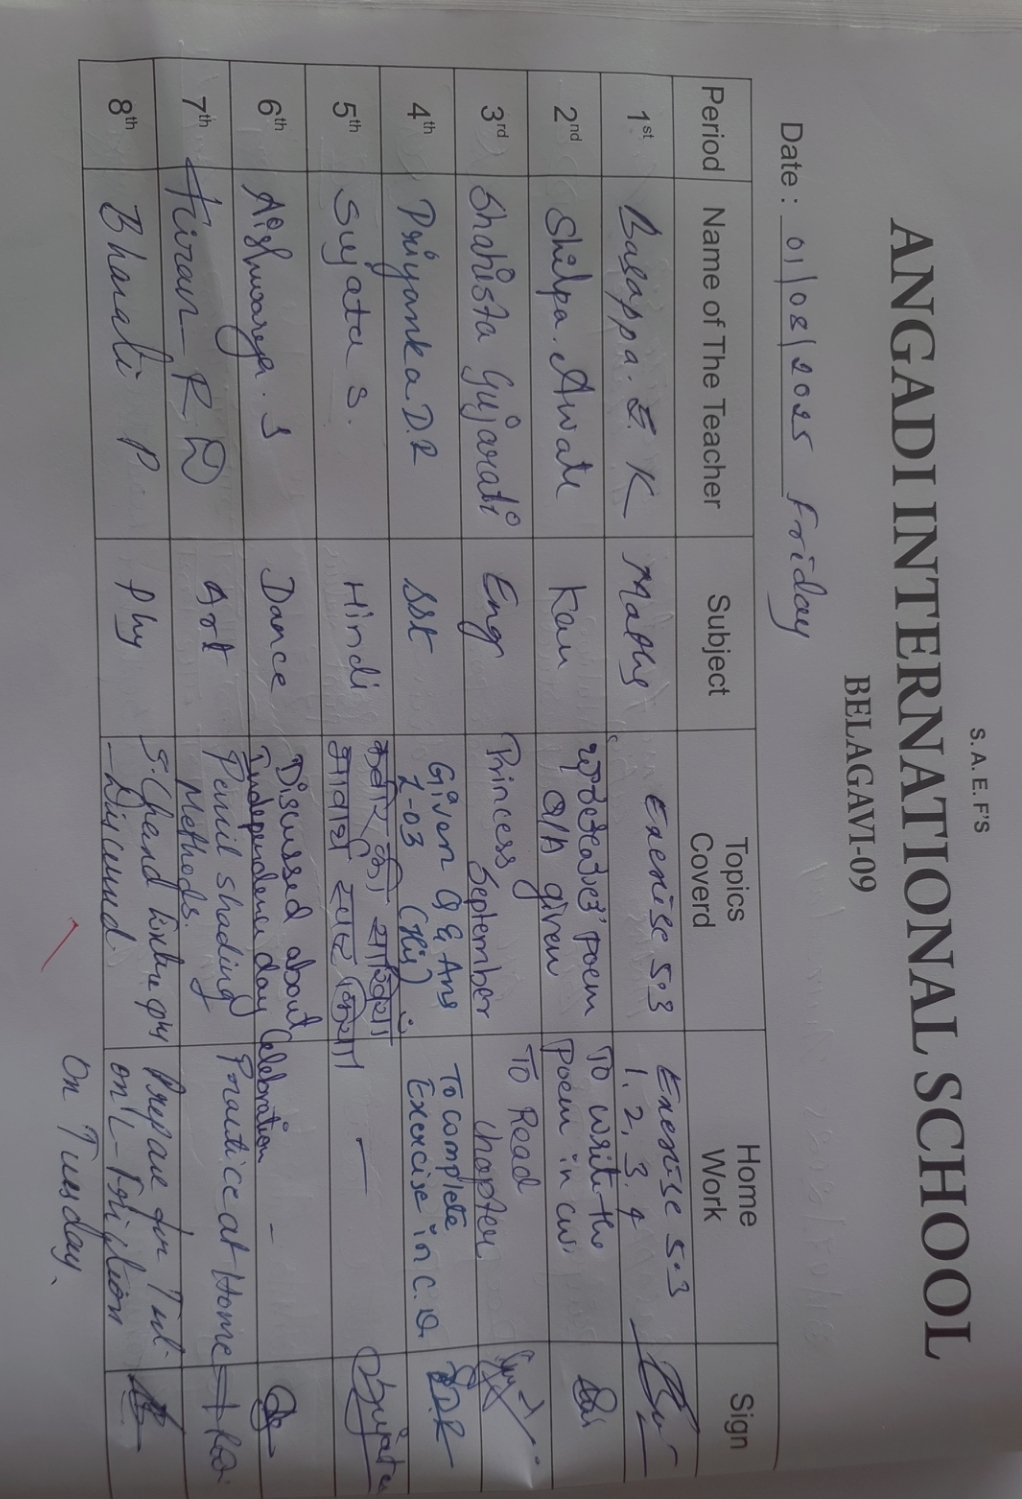 S. A. E. F'S
ANGADI INTERNATIONAL SCHOOL
BELAGAVI-09
Date : 01/08/2025 Friday
Period Name of The Teacher Subject Topics Coverd Home Work Sign
1st Basappa. K Maths Exercise 5.3 Exercise 5.3
1, 2, 3, 4
2nd Shilpa. Awate Kan poem To write the
Q/A given Poem in cw
3rd Shahista Gujarati Eng Princess To Read
September Chapter.
4th Priyanka D.R SSt Given Q & Ans To complete D.R
L-03 (His) Exercise in C.
5th Sujata S. Hindi कबीर की साखियाँ — Sujata
भावार्थ स्पष्ट किया
6th Aishwarya. S Dance Discussed about -
Independence day Celebration
7th Kiran R D Art Pencil shading Practice at Home
Methods.
8th Bharati P Phy S. Chand Prepare for
- Discussed on L- Friction
On Tuesday.